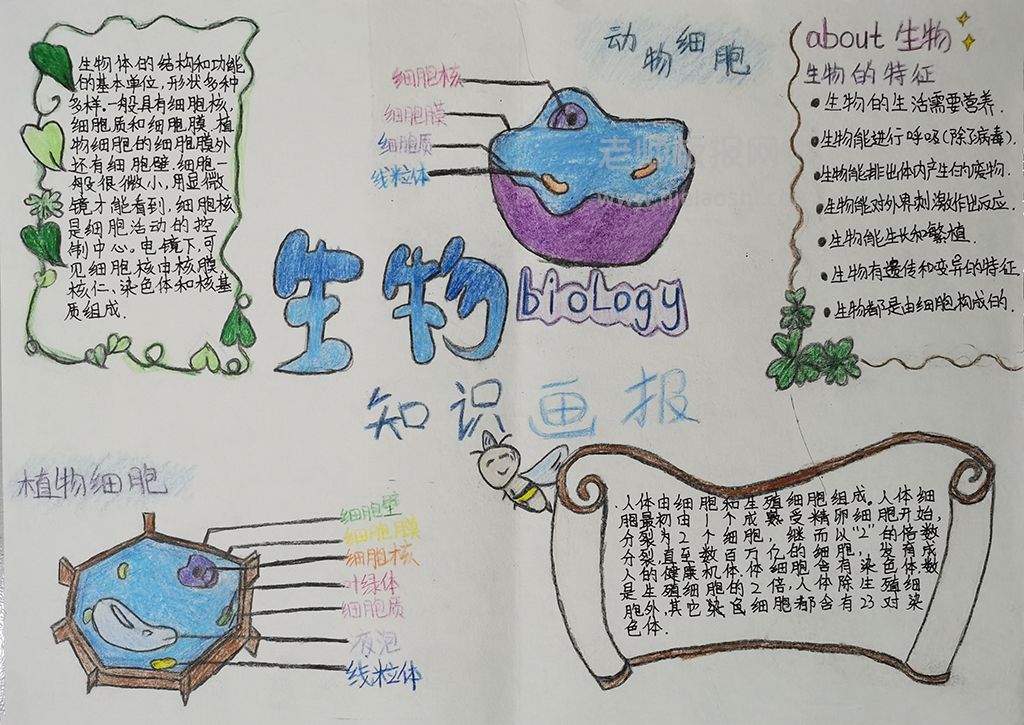 生物体的结构和功能
的基本单位,形状多种
多样。一般具有细胞核,
细胞质和细胞膜,植
物细胞的细胞膜外
还有细胞壁.细胞一
般很微小,用显微
镜才能看到,细胞核
是细胞活动的控
制中心。电镜下,可
见细胞核由核膜,
核仁、染色体和核基
质组成.
动物细胞
细胞核
细胞膜
细胞质
线粒体
about 生物
生物的特征
●生物的生活需要营养.
●生物能进行呼吸(除了病毒).
●生物能排出体内产生的废物.
●生物能对外界刺激作出反应.
●生物能生长和繁殖.
●生物有遗传和变异的特征.
●生物都是由细胞构成的.
生物
biology
知识画报
植物细胞
细胞壁
细胞膜
细胞核
叶绿体
细胞质
液泡
线粒体
人体由细胞和生殖细胞组成。人体细
胞最初由1个成熟受精卵细胞开始,
分裂为2个细胞,继而以"2"的倍数
分裂直至数百万亿的细胞,发育成
人的健康机体体细胞含有染色体数
是生殖细胞的2倍,人体除生殖细
胞外,其它染色细胞都含有23对染
色体.